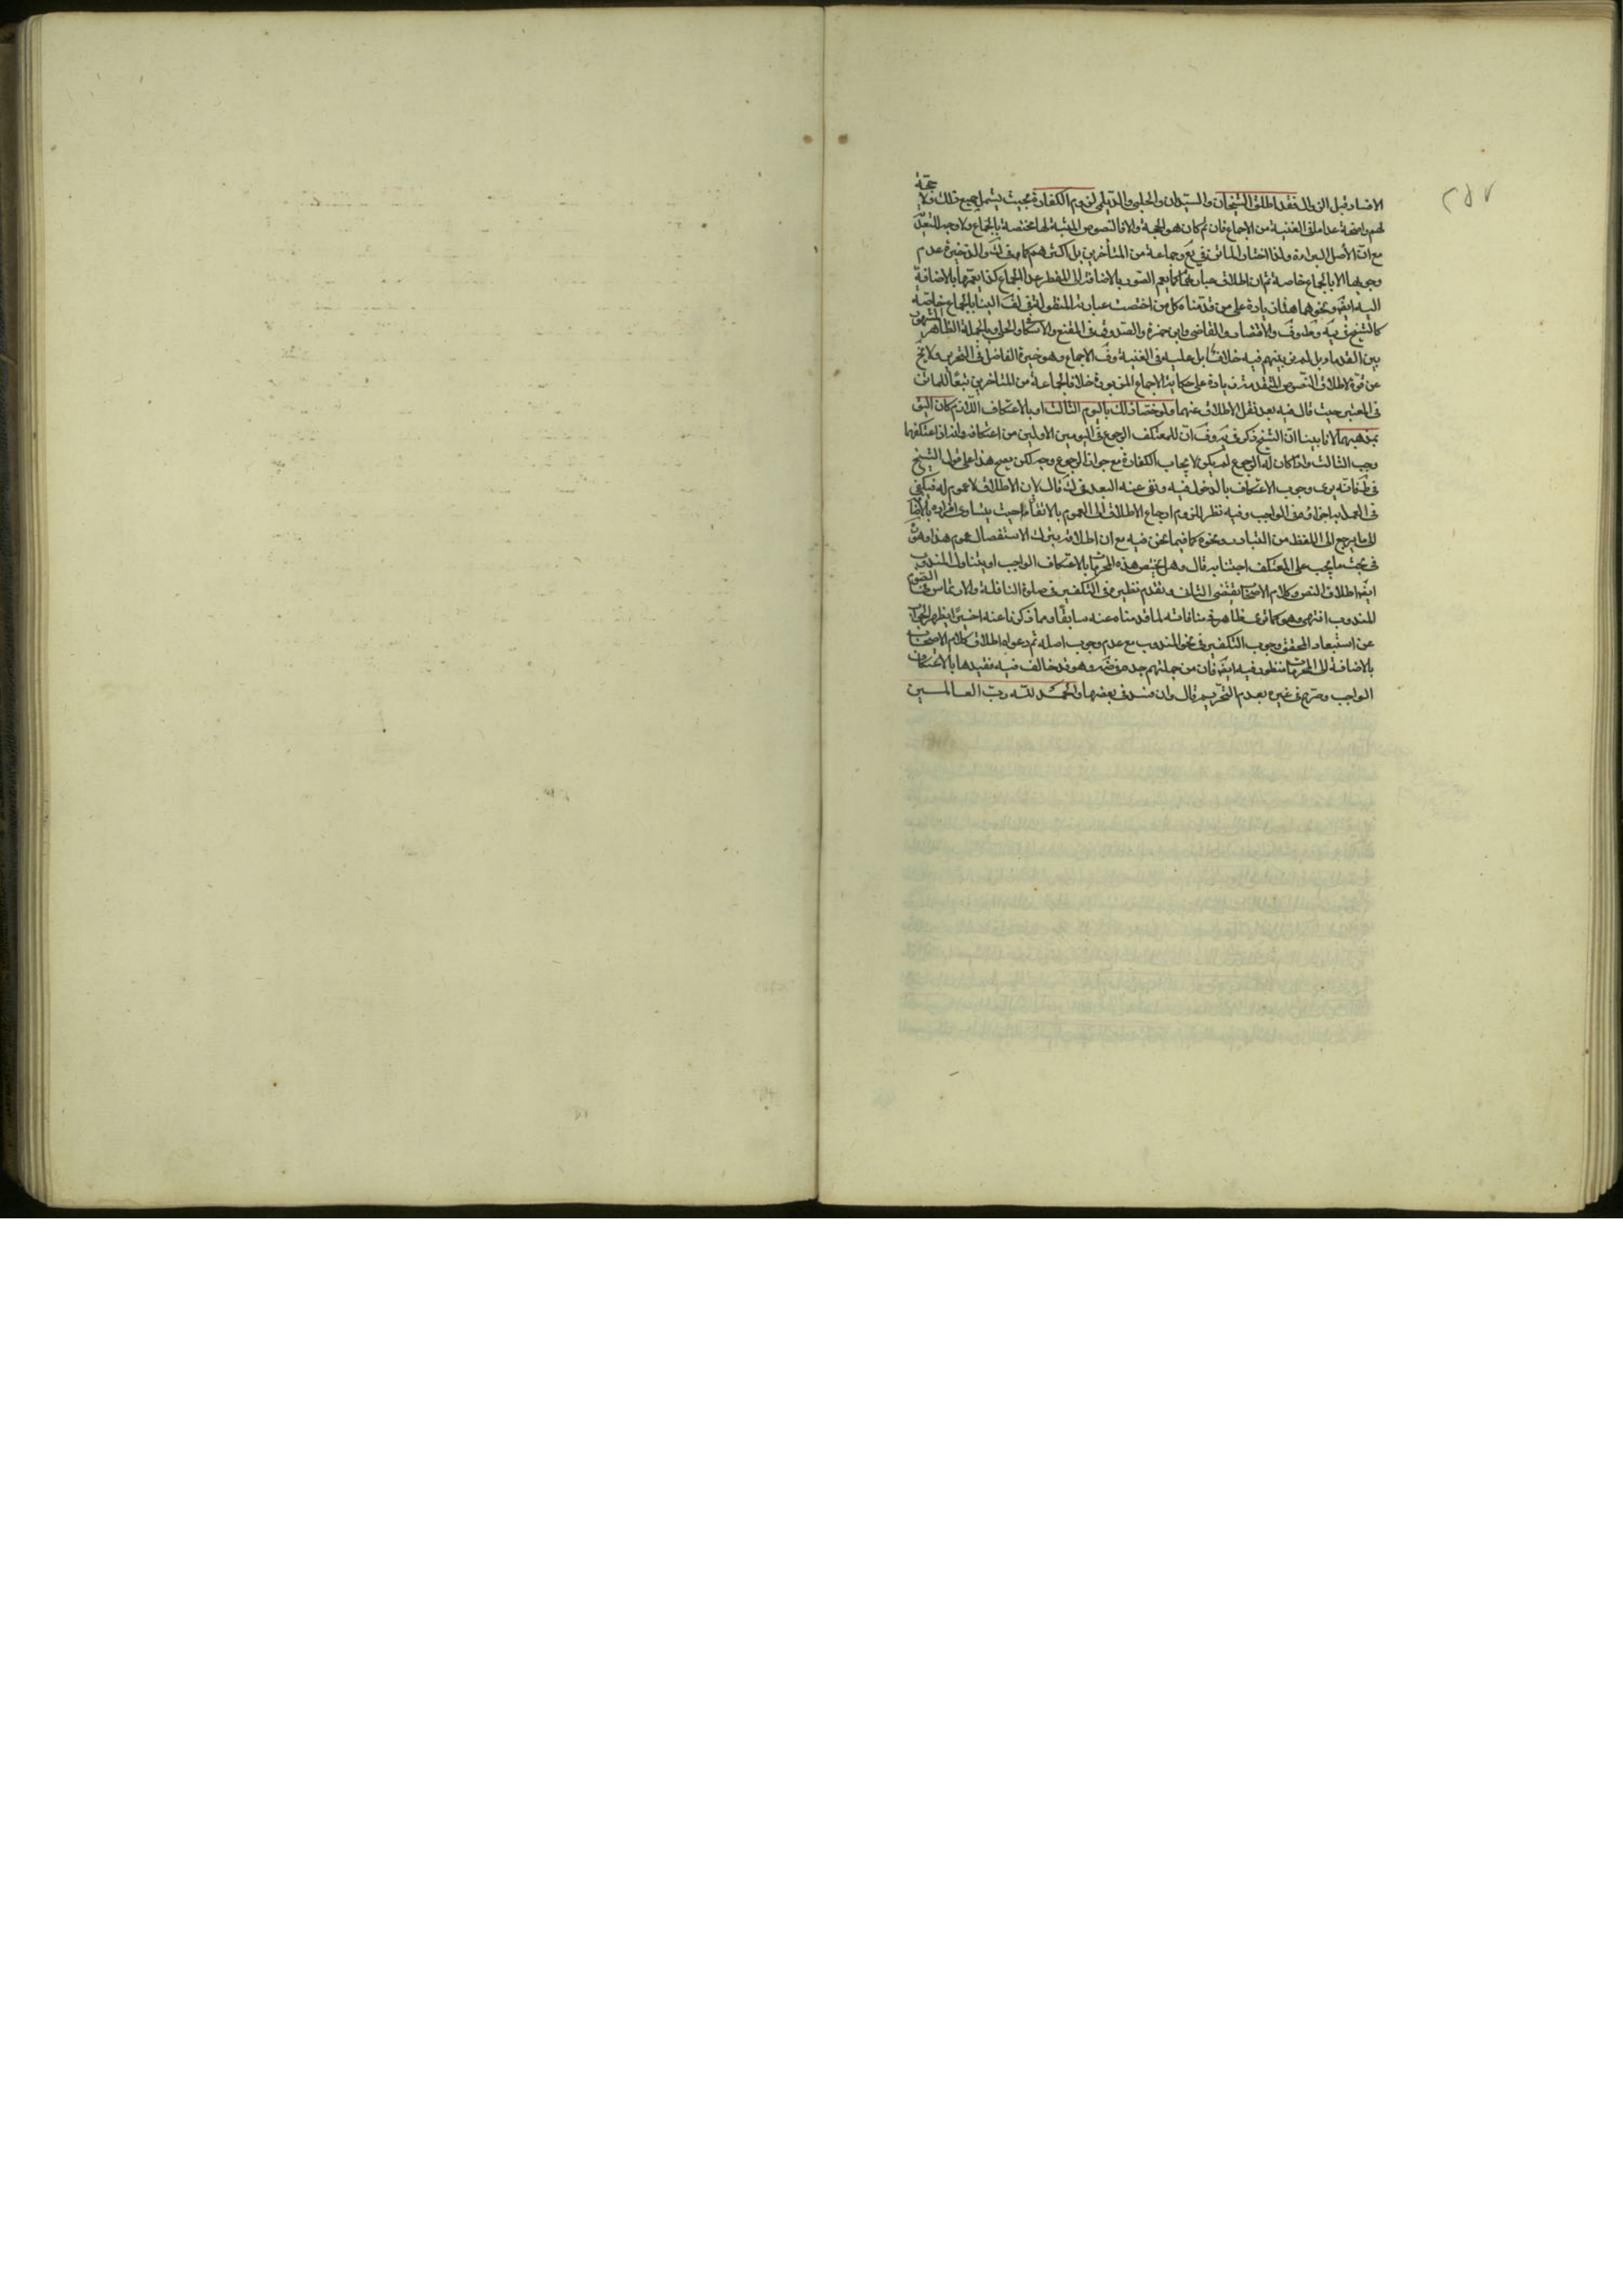 ٢٥٧
الافساد قبل الزوال فقد اطلق الشيخان والسيدان والحلبي والديلمي لزوم الكفارة بحيث يشمل جميع ذلك ولا حجة
لهم واضحة عدا ما في الغنية من الاجماع فان تم كان هو الحجة والا فالنصوص المثبتة لها مختصة بالجماع ولا وجه للتعدي
مع ان الأصل البراءة ولذا اختار الماتن في يع وجماعة من المتأخرين بل اكثرهم كما في ك والذخيرة عدم
وجوبها الا بالجماع خاصة ثم ان اطلاق عبائرهم كما يعم الصور بالاضافة الى المفطر عدا الجماع كذا يعمها بالاضافة
اليه ايضا ونحوهما هنا زيادة على من قدمناه كل من اختصت عبارته المنقولة في لف الينا بالجماع خاصة
كالشيخ في يه وط وف والاقتصاد والقاضي وابن حمزة والصدوق في المقنع والاسكافي والحلي وبالجملة الظاهر المشهور
بين القدماء بل لم نر بينهم فيه خلافا بل عليه في الغنية وف الاجماع وهو خيرة الفاضل في التحرير ولا يخ
عن قوة لاطلاق النصوص المتقدمة زيادة على حكاية الاجماع المزبورة خلافا لجماعة من المتأخرين تبعا للماتن
في المعتبر حيث قال فيه بعد نقل الاطلاق عنهما ولو خصا ذلك باليوم الثالث او بالاعتكاف اللازم كان اليق
بمذهبهما لانا بينا ان الشيخ ذكر في يه وف ان للمعتكف الرجوع في اليومين الاولين من اعتكافه وانه اذا اعتكفهما
وجب الثالث واذا كان له الرجوع لم يكن لايجاب الكفارة مع جواز الرجوع وجه لكن يصح هذا على قول الشيخ
في ط فانه يرى وجوب الاعتكاف بالدخول فيه ونفى عنه البعد في ك قال لان الاطلاق لا عموم له فيكفي
في العمل به اجزاؤه في الواجب وفيه نظر للزوم ارجاع الاطلاق الى العموم بالاتفاق حيث يتساوى افراده بالاضافة
الى ما يرجع الى اللفظ من التبادر ونحوه كما فيما نحن فيه مع ان اطلاقه بترك الاستفصال عموم هذا وهو
في بحث ما يجب على المعتكف اجتنابه قال وهل يختص هذه المحرمات بالاعتكاف الواجب او يتناول المندوب
ايضا اطلاق النص وكلام الاصحاب يقتضي الثاني وتقدم نظيره في التكفير في صلوة النافلة والارتماس في الصوم
المندوب انتهى وهو كما ترى ظاهر في منافاته لما قدمناه عنه سابقا ومما ذكرنا عنه اخيرا يظهر الجواب
عن استبعاد المحقق وجوب التكفير في نحو المندوب مع عدم وجوب اصله ثم دعواه اطلاق كلام الاصحاب
بالاضافة الى المحرمات منظور فيه ايضا فان من جملتهم جده في ضه وهو قد خالف فيه فقيدها بالاعتكاف
الواجب وصرح في غيره بعدم التحريم قال وان فسد في بعضها والحمد لله رب العالمين